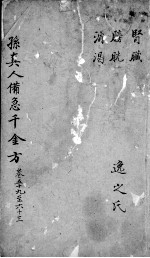 腎臟
膀胱
消渴
逸之氏
孫真人備急千金方
卷五十九至六十三